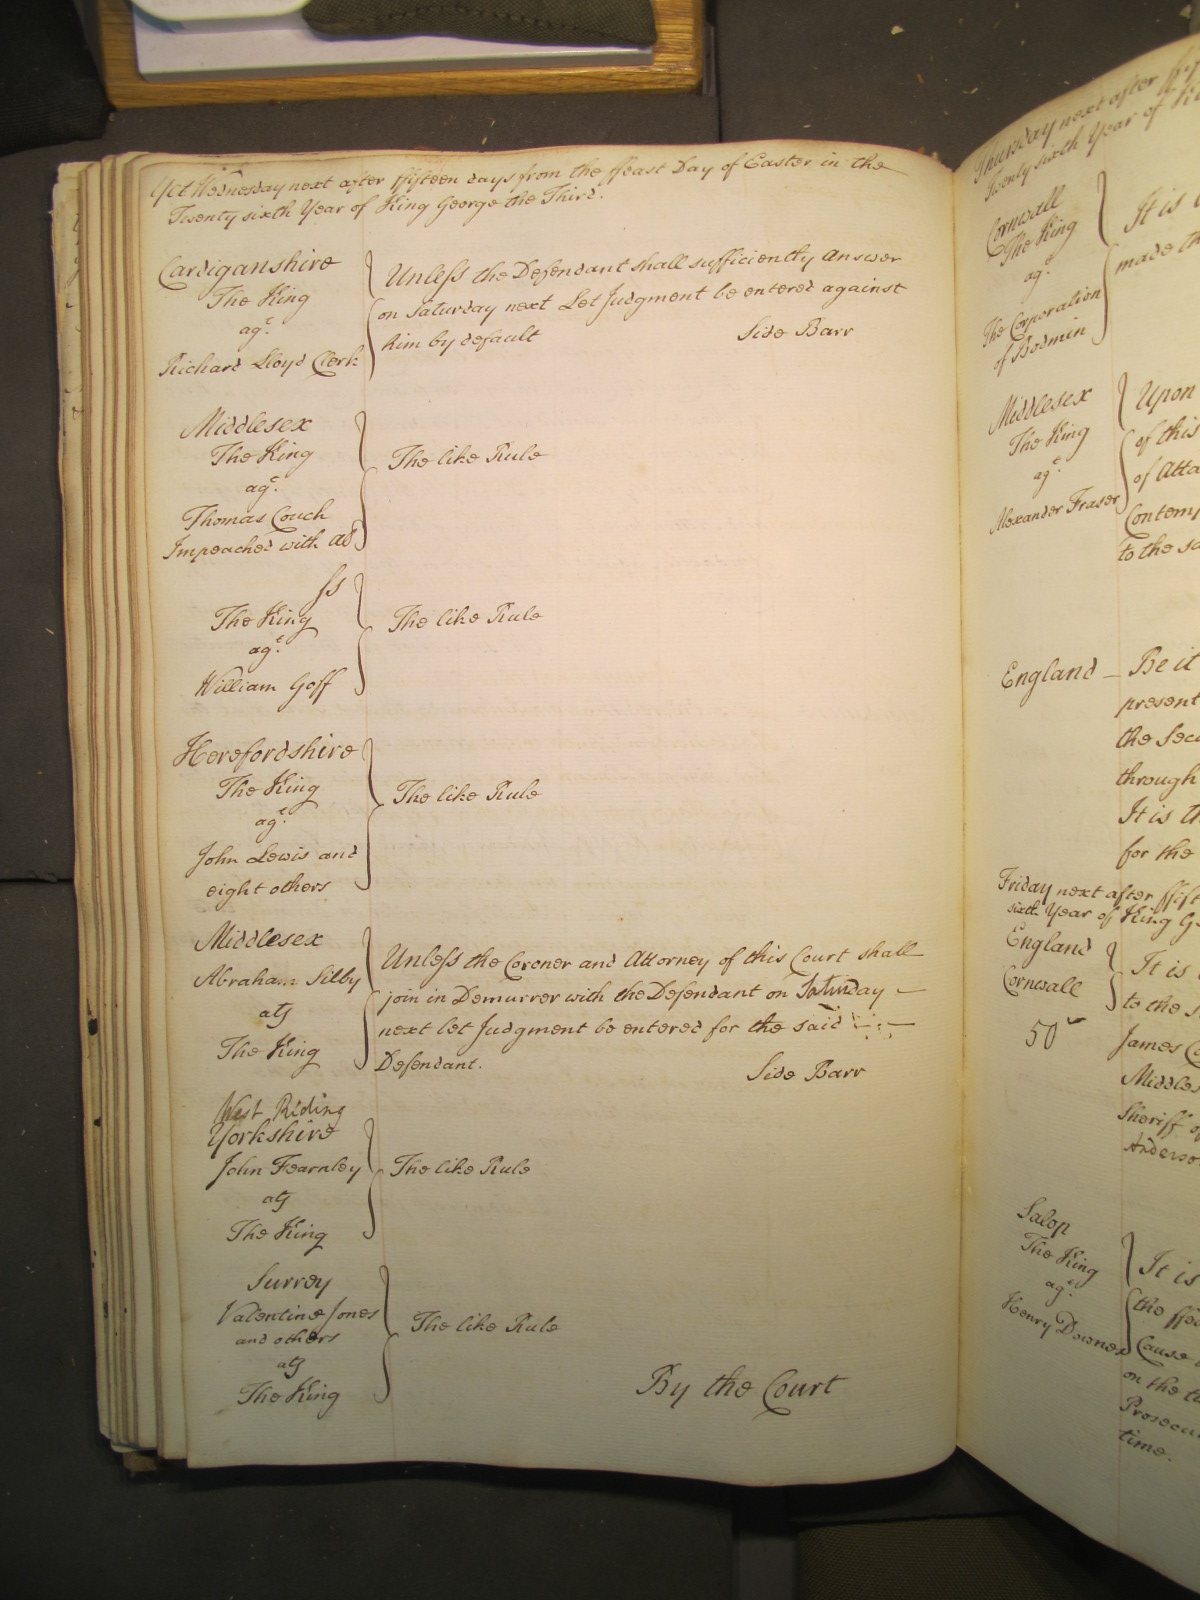 Yet Wednesday next after ffifteen days from the ffeast Day of Easter in the
Twenty sixth Year of King George the Third.
Cardiganshire
The King
agt.
Richard Lloyd Clerk
Unless the Defendant shall sufficiently Answer
on Saturday next Let Judgment be entered against
him by default Side Barr
Middlesex
The King
agt.
Thomas Couch
Impeached with
The like Rule
ss
The King
agt.
William Goff
The like Rule
Herefordshire
The King
agt.
John Lewis and
eight others
The like Rule
Middlesex
Abraham Silby
ats
The King
Unless the Coroner and Attorney of this Court shall
join in Demurrer with the Defendant on Saturday
next let Judgment be entered for the said
Defendant.
Side Barr
West Riding
Yorkshire
John Fearnley
ats
The King
The like Rule
Surrey
Valentine Jones
and others
ats
The King
The like Rule
By the Court
Thursday next after
Twenty sixth Year of
Cornwall
The King
agt.
The Corporation
of Bodmin
It is
made
Middlesex
The King
agt.
Alexander Fraser
Upon
of this
of
to the
England - Be it
present
the
through
It is
for the
Friday next after
sixth Year of King
England
Cornwall
50
It is
to the
James
Sheriff
Salop
The King
agt.
Henry Downes
It is
the
Cause
on the
time.